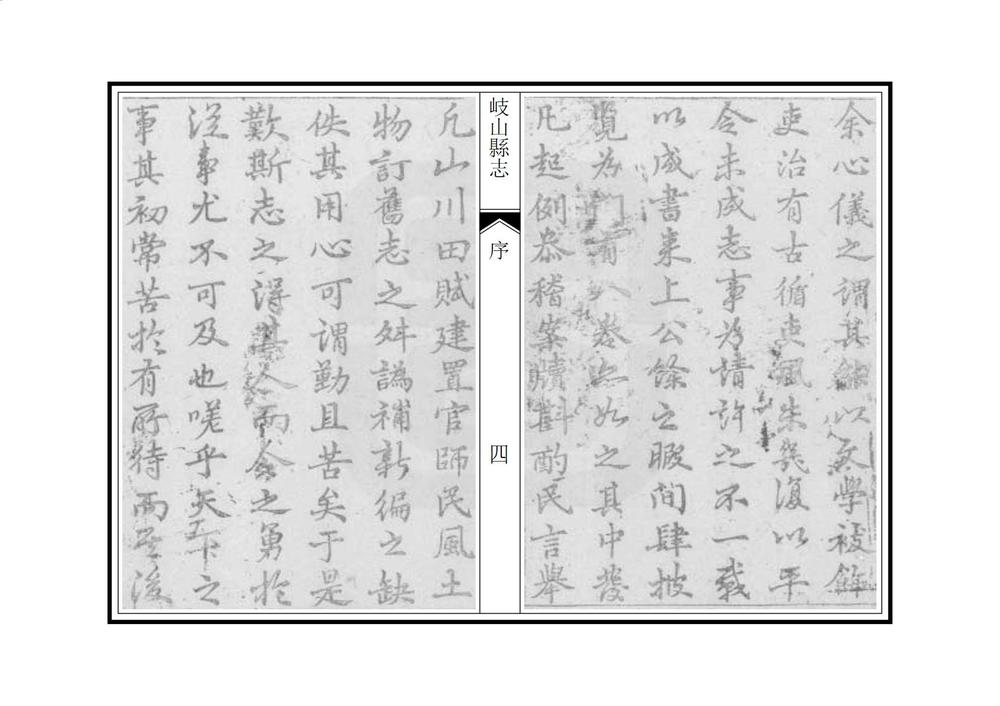 余心儀之謂其能以文學被飾
吏治有古循吏風未幾復以平
令未成志事為情許之不一載
以成書來上公餘之暇間肆披
覽為門有八卷亦如之其中發
凡起例恭稽案牘斟酌民言舉
岐山縣志
序
四
凡山川田賦建置官師民風土
物訂舊志之舛譌補新編之缺
佚其用心可謂勤且苦矣于是
歎斯志之得其人而令之勇於
從事尤不可及也嗟乎天下之
事其初常苦於有所待而其後